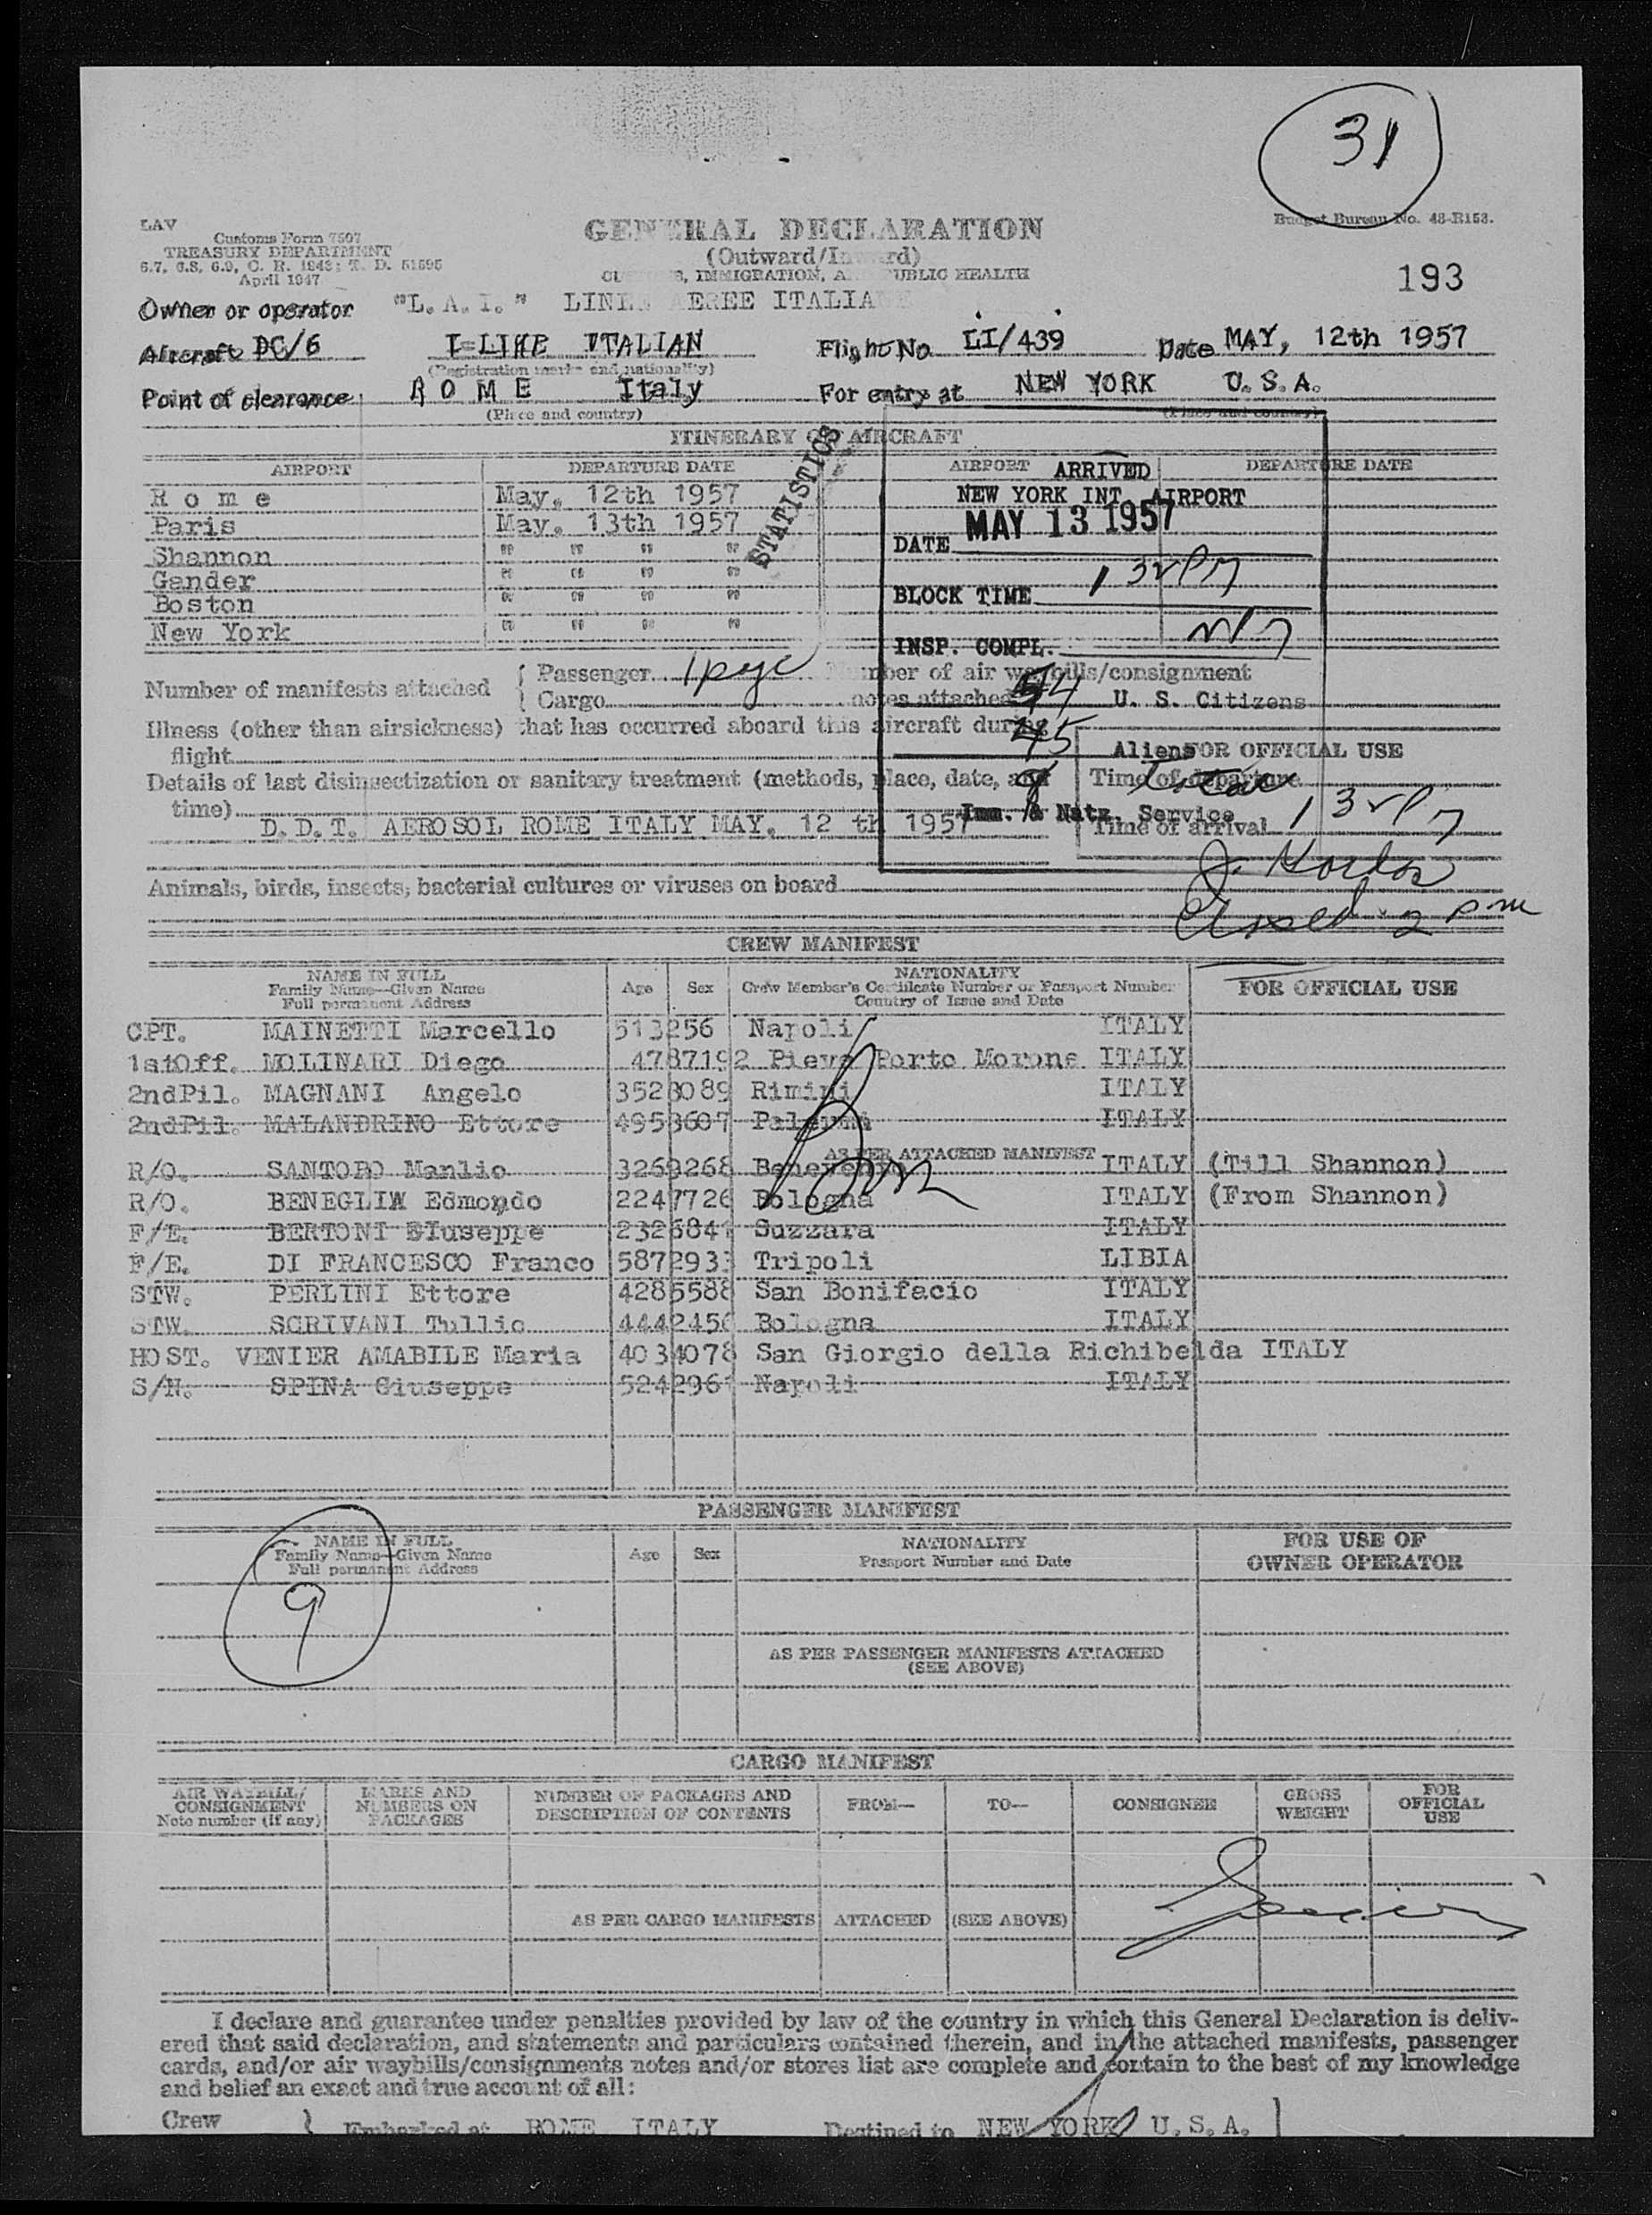 31
LAV
Customs Form 7507
TREASURY DEPARTMENT
6.7, 6.8, 6.9, C. R. 1943; T. D. 51595
April 1947
GENERAL DECLARATION
(Outward/Inward)
CUSTOMS, IMMIGRATION, AND PUBLIC HEALTH
Budget Bureau No. 48-R153.
193
Owner or operator "L. A. I." LINEE AEREE ITALIA
Aircraft DC/6 I-LIKE ITALIAN Flight No LI/439 Date MAY, 12th 1957
(Registration marks and nationality)
Point of clearance R O M E Italy For entry at NEW YORK U. S. A.
(Place and country) (Place and country)
ITINERARY OF AIRCRAFT
AIRPORT DEPARTURE DATE AIRPORT DEPARTURE DATE
R o m e May. 12th 1957
Paris May. 13th 1957
Shannon " " " "
Gander " " " "
Boston " " " "
New York " " " "
STATISTICS
ARRIVED
NEW YORK INT. AIRPORT
DATE MAY 13 1957
BLOCK TIME 132 PM
INSP. COMPL.
U. S. Citizens
45 Aliens
Total
Imm. & Natz. Service
Number of manifests attached { Passenger 1 pge Number of air waybills/consignment
{ Cargo notes attached
Illness (other than airsickness) that has occurred aboard this aircraft during
flight
FOR OFFICIAL USE
Details of last disinsectization or sanitary treatment (methods, place, date, and
time) D. D. T. AEROSOL ROME ITALY MAY. 12 th 1957
Time of departure
Time of arrival 132 PM
Animals, birds, insects, bacterial cultures or viruses on board
Closed 2 pm
CREW MANIFEST
NAME IN FULL
Family Name—Given Name
Full permanent Address
Age Sex
NATIONALITY
Crew Member's Certificate Number or Passport Number
Country of Issue and Date
FOR OFFICIAL USE
CPT. MAINETTI Marcello 513256 Napoli ITALY
1stOff. MOLINARI Diego 4787192 Pieve Porto Morone ITALY
2ndPil. MAGNANI Angelo 3528089 Rimini ITALY
2ndPil. MALANDRINO Ettore 4958607 ITALY
AS PER ATTACHED MANIFEST
R/O. SANTORO Manlio 3269268 Benevento ITALY (Till Shannon)
R/O. BENEGLIA Edmondo 2247726 Bologna ITALY (From Shannon)
F/E. BERTONI Giuseppe 2326841 Suzzara ITALY
F/E. DI FRANCESCO Franco 5872933 Tripoli LIBIA
STW. PERLINI Ettore 4285588 San Bonifacio ITALY
STW. SCRIVANI Tullio 4442456 Bologna ITALY
HOST. VENIER AMABILE Maria 4034078 San Giorgio della Richibelda ITALY
S/H. SPINA Giuseppe 5242961 Napoli ITALY
PASSENGER MANIFEST
NAME IN FULL
Family Name—Given Name
Full permanent Address
Age Sex
NATIONALITY
Passport Number and Date
FOR USE OF
OWNER OPERATOR
9
AS PER PASSENGER MANIFESTS ATTACHED
(SEE ABOVE)
CARGO MANIFEST
AIR WAYBILL/
CONSIGNMENT
Note number (if any)
MARKS AND
NUMBERS ON
PACKAGES
NUMBER OF PACKAGES AND
DESCRIPTION OF CONTENTS
FROM— TO— CONSIGNEE
GROSS
WEIGHT
FOR
OFFICIAL
USE
AS PER CARGO MANIFESTS ATTACHED (SEE ABOVE)
I declare and guarantee under penalties provided by law of the country in which this General Declaration is deliv-
ered that said declaration, and statements and particulars contained therein, and in the attached manifests, passenger
cards, and/or air waybills/consignments notes and/or stores list are complete and contain to the best of my knowledge
and belief an exact and true account of all:
Crew } Embarked at ROME ITALY Destined to NEW YORK U. S. A. }